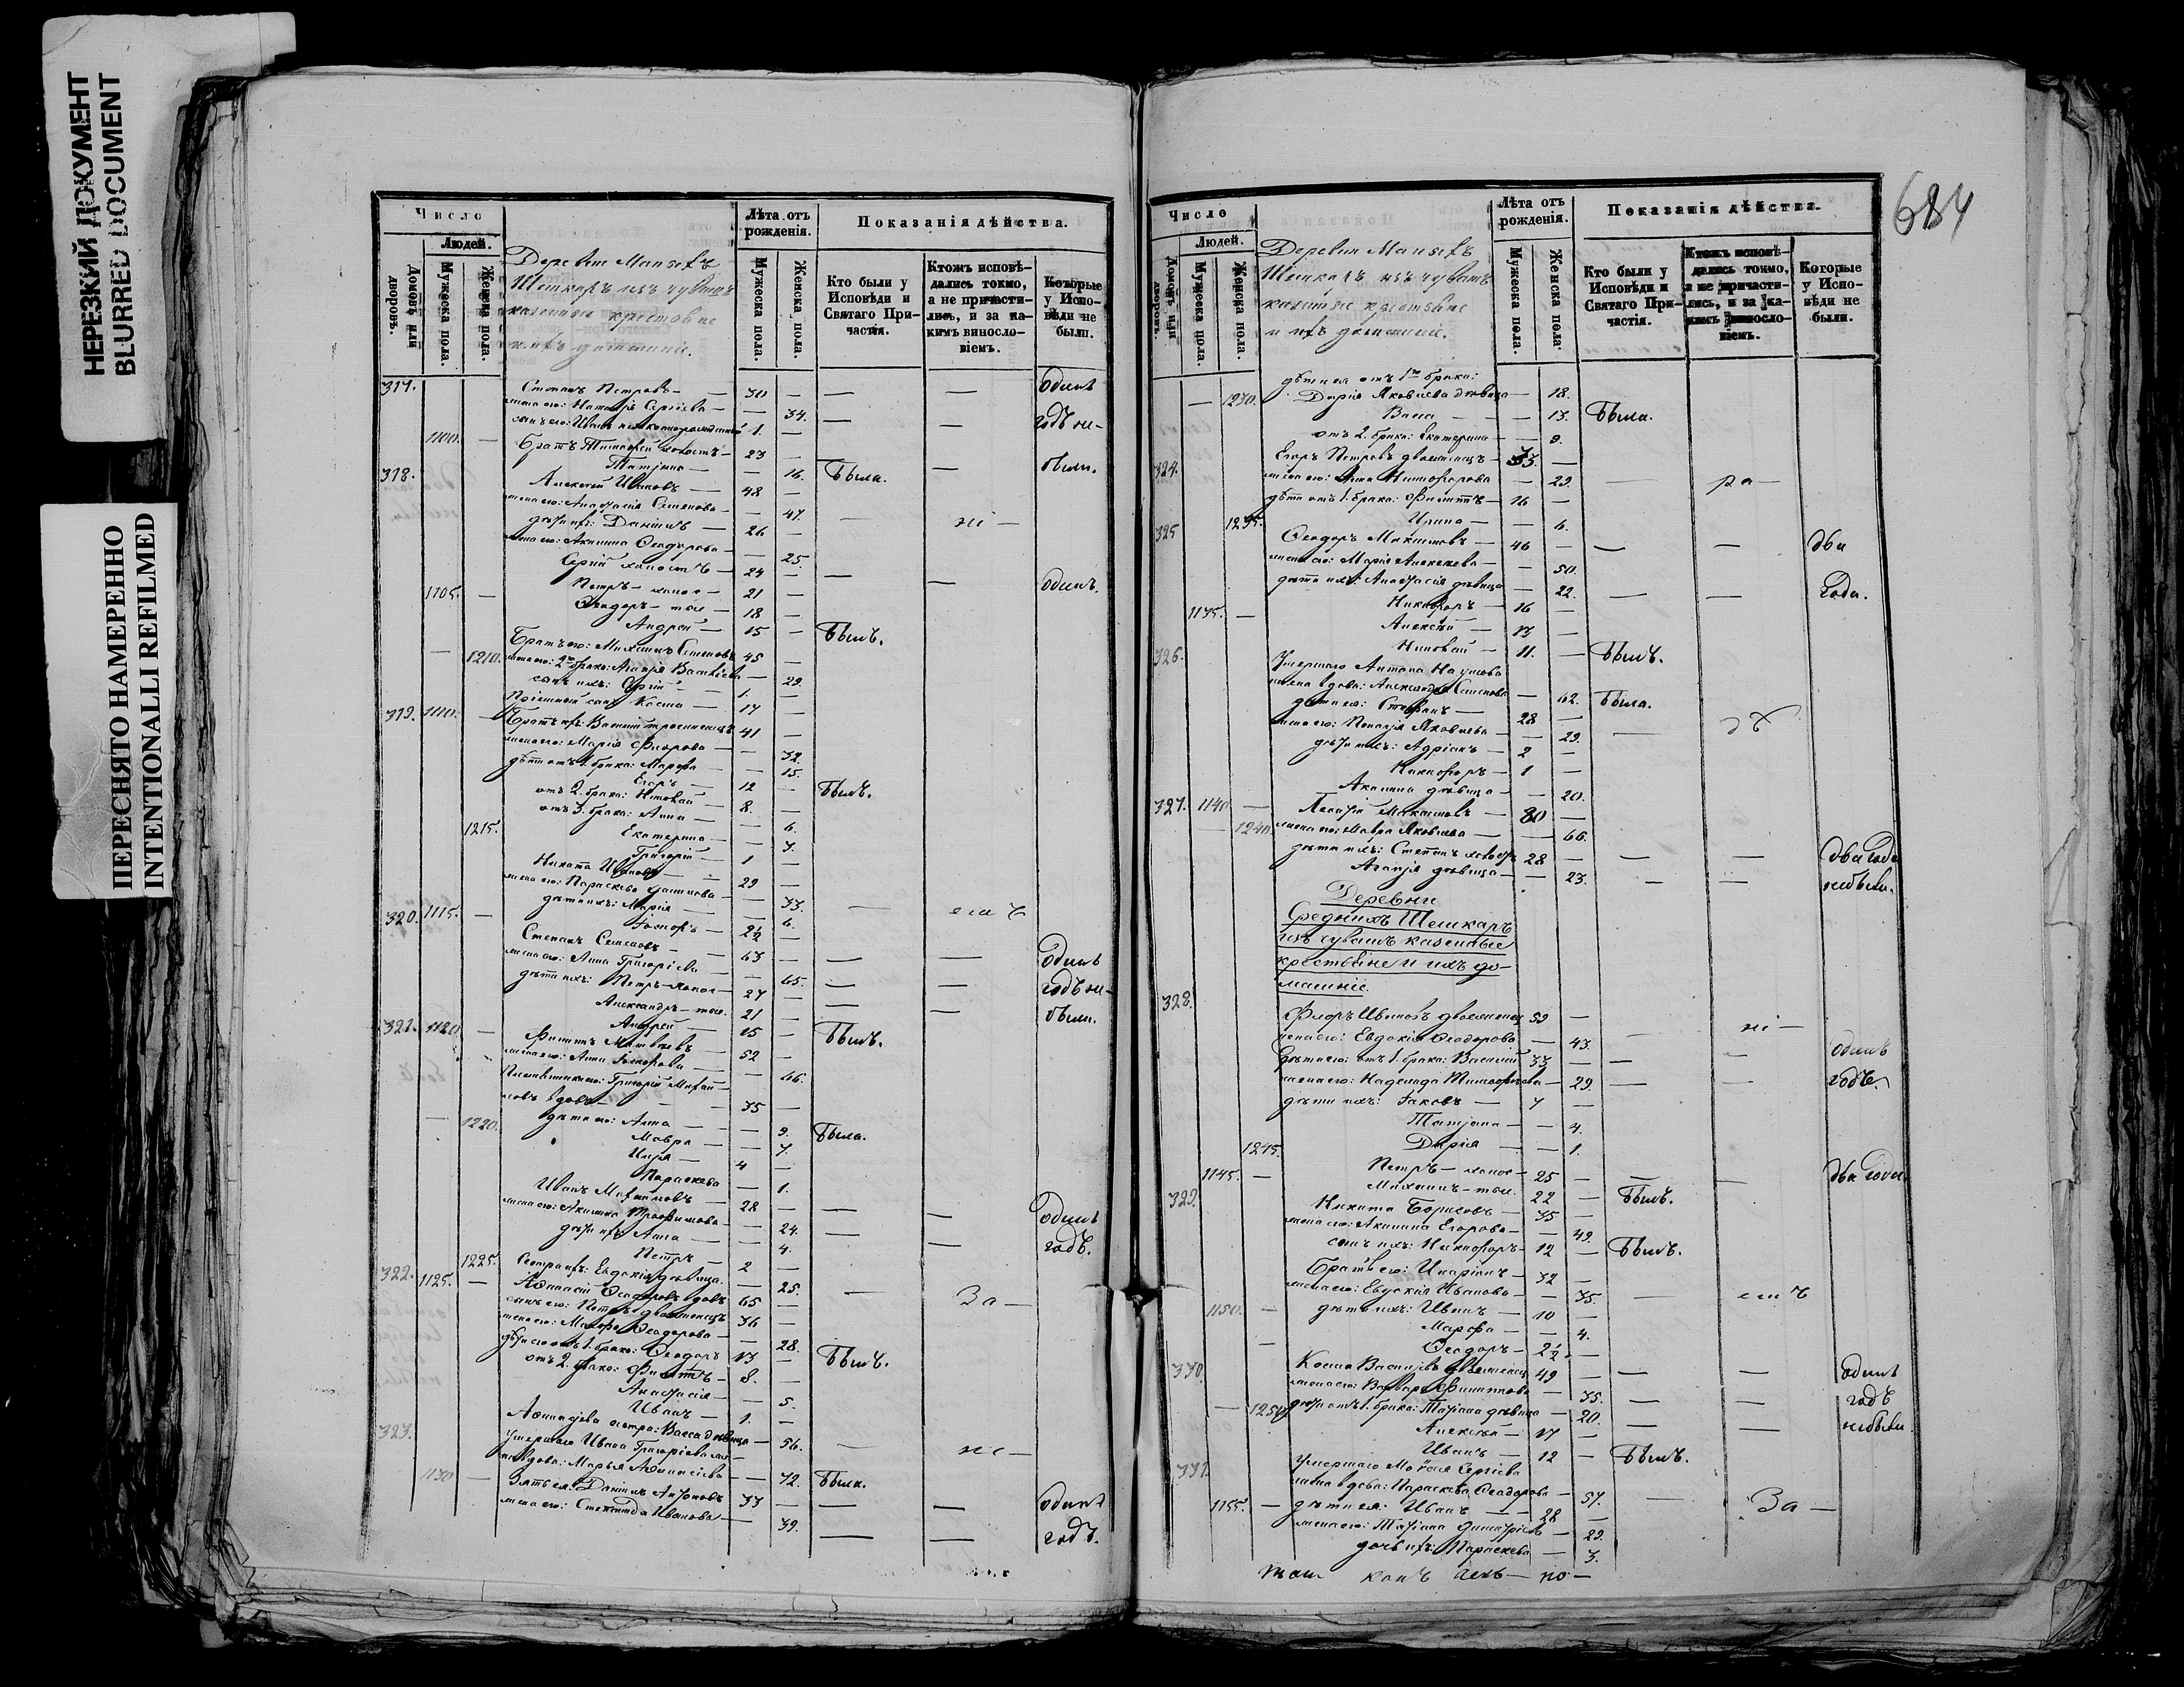 НЕРЕЗКИЙ ДОКУМЕНТ
BLURRED DOCUMENT
ПЕРЕСНЯТО НАМЕРЕННО
INTENTIONALLI REFILMED
Число
Людей.
Домовъ или дворовъ.
Мужеска пола.
Женска пола.
Деревни Малыхъ
Шешкаръ изъ чувашъ
казенные крестьяне
и ихъ домашніе.
Лѣта отъ рожденія.
Мужеска пола.
Женска пола.
Показанія дѣйства.
Кто были у Исповѣди и Святаго Причастія.
Ктожъ исповѣдались токмо, а не причастились, и за какимъ винословіемъ.
Которые у Исповѣди не были.
317. Степанъ Петровъ — 30 — — — Одинъ
жена его: Наталія Сергіева — — 34. — — годъ не-
1100. — Братъ Тимофей холостъ — 23 — — — были.
Татіана — — 16. Была.
318. Алексѣй Ивановъ — 48 —
жена его: Анастасія Семенова — — 47. — ні —
дѣти ихъ: Даніилъ — 26 —
жена его: Акилина Ѳеодорова — — 25.
Сергій холостъ — 24 — — — одинъ.
1105. — Петръ — холос — 21 —
Ѳеодоръ — тож — 18 —
Андрей — 15 — Былъ.
Братъ его: Михаилъ Семеновъ 45 —
— 1210. жена его: 2го брака: Агапія Васильева — 29.
сынъ ихъ: Сергій — 1. —
Пріемный сынъ Косма — 17 —
319. 1110. — Братъ ихъ: Василій троеженецъ 41 —
жена его: Марія Флорова — — 32.
дѣти отъ 1. брака: Марѳа — — 15.
Егоръ — 12 — Былъ.
отъ 2. брака: Николай — 8. —
отъ 3. брака: Анна — — 6.
1215. Екатерина — — 3.
Григорій — 1 —
Никита Ивановъ — 29 —
жена его: Параскева — — 33.
дѣти ихъ: Марія — — 6. — емъ
320. 1115. — 2½ —
Степанъ Семеновъ — 63 — — — Одинъ
жена его: Анна Григоріева — — 65. — — годъ не-
дѣти ихъ: Петръ — холос — 27 — — — были.
Александръ — тож. 21 —
Андрей — 15 — Былъ.
321. 1120 — Филиппъ Матвѣевъ — 52 —
жена его: Анна — — 66.
Племянникъ его: Григорій Михай-
ловъ вдовъ — 35 —
— 1220. дѣти его: Анна — — 9. Была.
Мавра — — 7.
Илія — 4 —
Параскева — 1.
Иванъ — 28 — — — Одинъ
жена его: Акилина Трофимова — — 24. — — годъ.
дѣти ихъ: Анна — — 4.
Петръ — 2 —
1225. Сестра ихъ: Евдокія дѣвица — — 25.
322. 1125. — Аѳанасій Ѳеодоровъ вдовъ 65 — — За —
сынъ его: Петръ двоеженецъ 36 —
жена его: Матрона Ѳеодорова — — 28.
дѣти его отъ 1. брака: Ѳеодоръ 13 — Былъ.
отъ 2. брака: Филиппъ — 8. —
Анастасія — — 5.
Иванъ — 1. —
Аѳанасьева сестра: Васса дѣвица — 56. — не —
323. Умершаго Ивана Григоріева же-
на вдова: Марья Аѳанасіева — — 72. Была.
1130 — Зять ея: Даніилъ Антоновъ 33 — — — Одинъ
жена его: Степанида Иванова — — 39. — — годъ.
684
Число
Людей.
Домовъ или дворовъ.
Мужеска пола.
Женска пола.
Деревни Малыхъ
Шешкаръ изъ чувашъ
казенные крестьяне
и ихъ домашніе.
Лѣта отъ рожденія.
Мужеска пола.
Женска пола.
Показанія дѣйства.
Кто были у Исповѣди и Святаго Причастія.
Ктожъ исповѣдались токмо, а не причастились, и за какимъ винословіемъ.
Которые у Исповѣди не были.
дѣти ея отъ 1го брака:
— 1230. Дарія Яковлева дѣвица — 18.
Васса — — 13. Была.
отъ 2. брака: Екатерина — — 9.
324. Егоръ Петровъ двоеженецъ — 33. —
жена его: Анна Никифорова — 29. — ра —
дѣти отъ 1. брака: Филиппъ — 16 —
1235. Ирина — — 6.
325 Ѳеодоръ Максимовъ — 46 — — — два
жена его: Марія Алексѣева — — 50.
дѣти ихъ: Анастасія дѣвица — 22. — — Года.
1135. — Никифоръ — 16 —
Алексѣй — 13 —
Николай — 11. — Былъ.
326. Умершаго Антона Наумова
жена вдова: Александра Семенова — 62. Была.
дѣти ея: Стефанъ — 28 —
жена его: Пелагія Яковлева — — 29.
дѣти ихъ: Адріанъ — 2 —
Никифоръ — 1 —
Акилина дѣвица — — 20.
327. 1140 — Максимовъ — 80 —
— 1240. жена его: Мавра Яковлева — — 66.
дѣти ихъ: Степанъ холостъ 28 — — — два года
Агапія дѣвица — — 23. — — небыли.
Деревни
Среднихъ Шешкаръ
изъ чувашъ казенные
крестьяне и ихъ до-
машніе.
328. Флоръ Ивановъ двоеженец 59 — — ні —
жена его: Евдокія Ѳеодорова — 43.
дѣти его: отъ 1. брака: Василій 33 — — — одинъ
жена его: Надежда Тимофѣева — 29. — — годъ.
дѣти ихъ: Іаковъ — 7 —
Татіана — — 4.
1245. Дарія — — 1.
1145. — Петръ — холос — 25 — — — два года
Михаилъ — тож. 22 — Былъ.
329. Никита Борисовъ — 35 —
жена его: Акилина Егорова — — 49.
сынъ ихъ: Никифоръ — 12 — Былъ.
Братъ его: Иларіонъ — 32 —
жена его: Евдокія Иванова — — 35. — емъ
1150. — дѣти ихъ: Иванъ — 10 —
Марѳа — — 4.
Ѳеодоръ — 2½ —
330. Косма Васильевъ двоеженец 49 — — — одинъ
жена его: Варвара Филиппова — 35. — — годъ
— 1250 дѣти отъ 1. брака: Татіана дѣвица — 20. — — небыли
Алексѣй — 17 —
Иванъ — 12 — Былъ.
331. Умершаго Моѵсея Сергіева
жена вдова: Параскева Ѳеодорова — 57. — За —
1155. — дѣти ея: Иванъ — 28 —
жена его: Татіана — 29.
дочь ихъ: Параскева — 3.